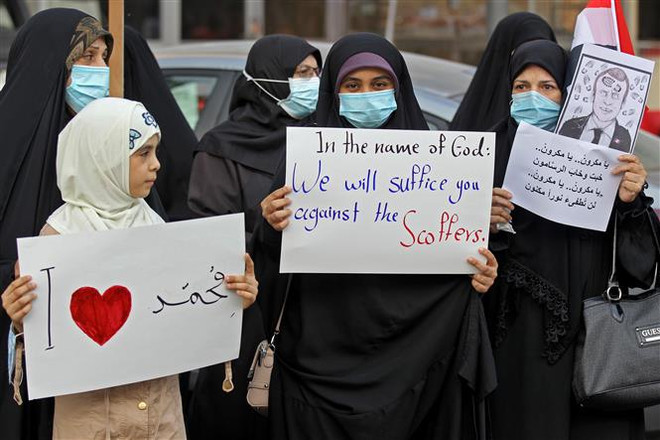 I محمد
In the name of God:
We will suffice you
against the Scoffers.
يا مكرون.. يا مكرون..
خبت وخاب الرسامون
يا مكرون.. يا مكرون..
لن تطفىء نوراً مكنون